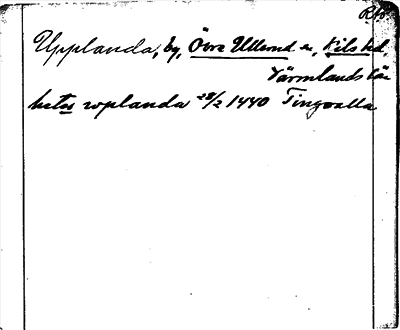 RAp
Upplanda, by, Övre Ullerud sn, Kils hd,
Värmlands län
hetes wplanda 28/2 1440 Tingvalla